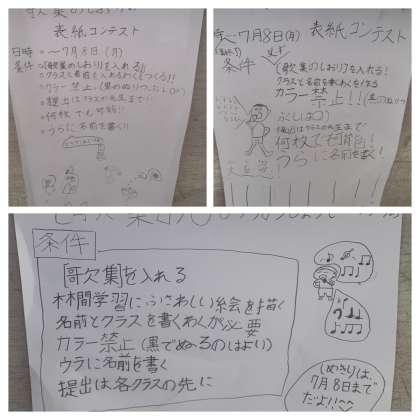 歌集のしおり
表紙コンテスト
日時 ～7月8日(月)
条件
・「歌集のしおり」を入れる!!
・クラスと名前を入れるわくをつくる!!
・カラー禁止、(黒のぬりつぶしはO)
・提出はクラスの先生まで…
・何枚でも可能!!
・うらに名前を書く!!
表紙コンテスト
～7月8日(月)
条件 必ず
「歌集のしおり」を入れる!
クラスと名前を書くわくを作る
カラー禁止!!(黒の
ぶしはO)
提出はクラスの先生まで
何枚でも可能!
うらに名前を書く!
条件
[歌集]を入れる
林間学習にふさわしい絵を描く
名前とクラスを書くわくが必要
カラー禁止(黒でぬるのはよい)
ウラに名前を書く
提出は各クラスの先に
しめきりは、
7月8日まで
だよ!!